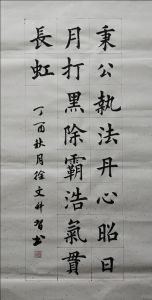 秉公執法丹心昭日
月打黑除霸浩氣貫
長虹
丁酉秋月徐文升智书